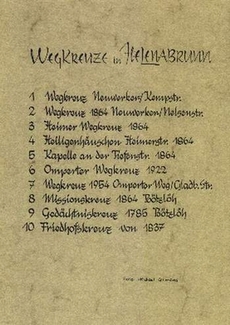 Wegkreuze in Helenabrunn
1 Wegkreuz Neuwerken/Kempstr.
2 Wegkreuz 1864 Neuwerken/Nelsenstr.
3 Heimer Wegkreuz 1864
4 Heiligenhäuschen Heimerstr. 1864
5 Kapelle an der Tiefenstr. 1864
6 Omperter Wegkreuz 1922
7 Wegkreuz 1954 Omperter Weg/Gladb. Str.
8 Missionskreuz 1864 Bötzlöh
9 Gedächtniskreuz 1785 Bötzlöh
10 Friedhofskreuz von 1837
Michael